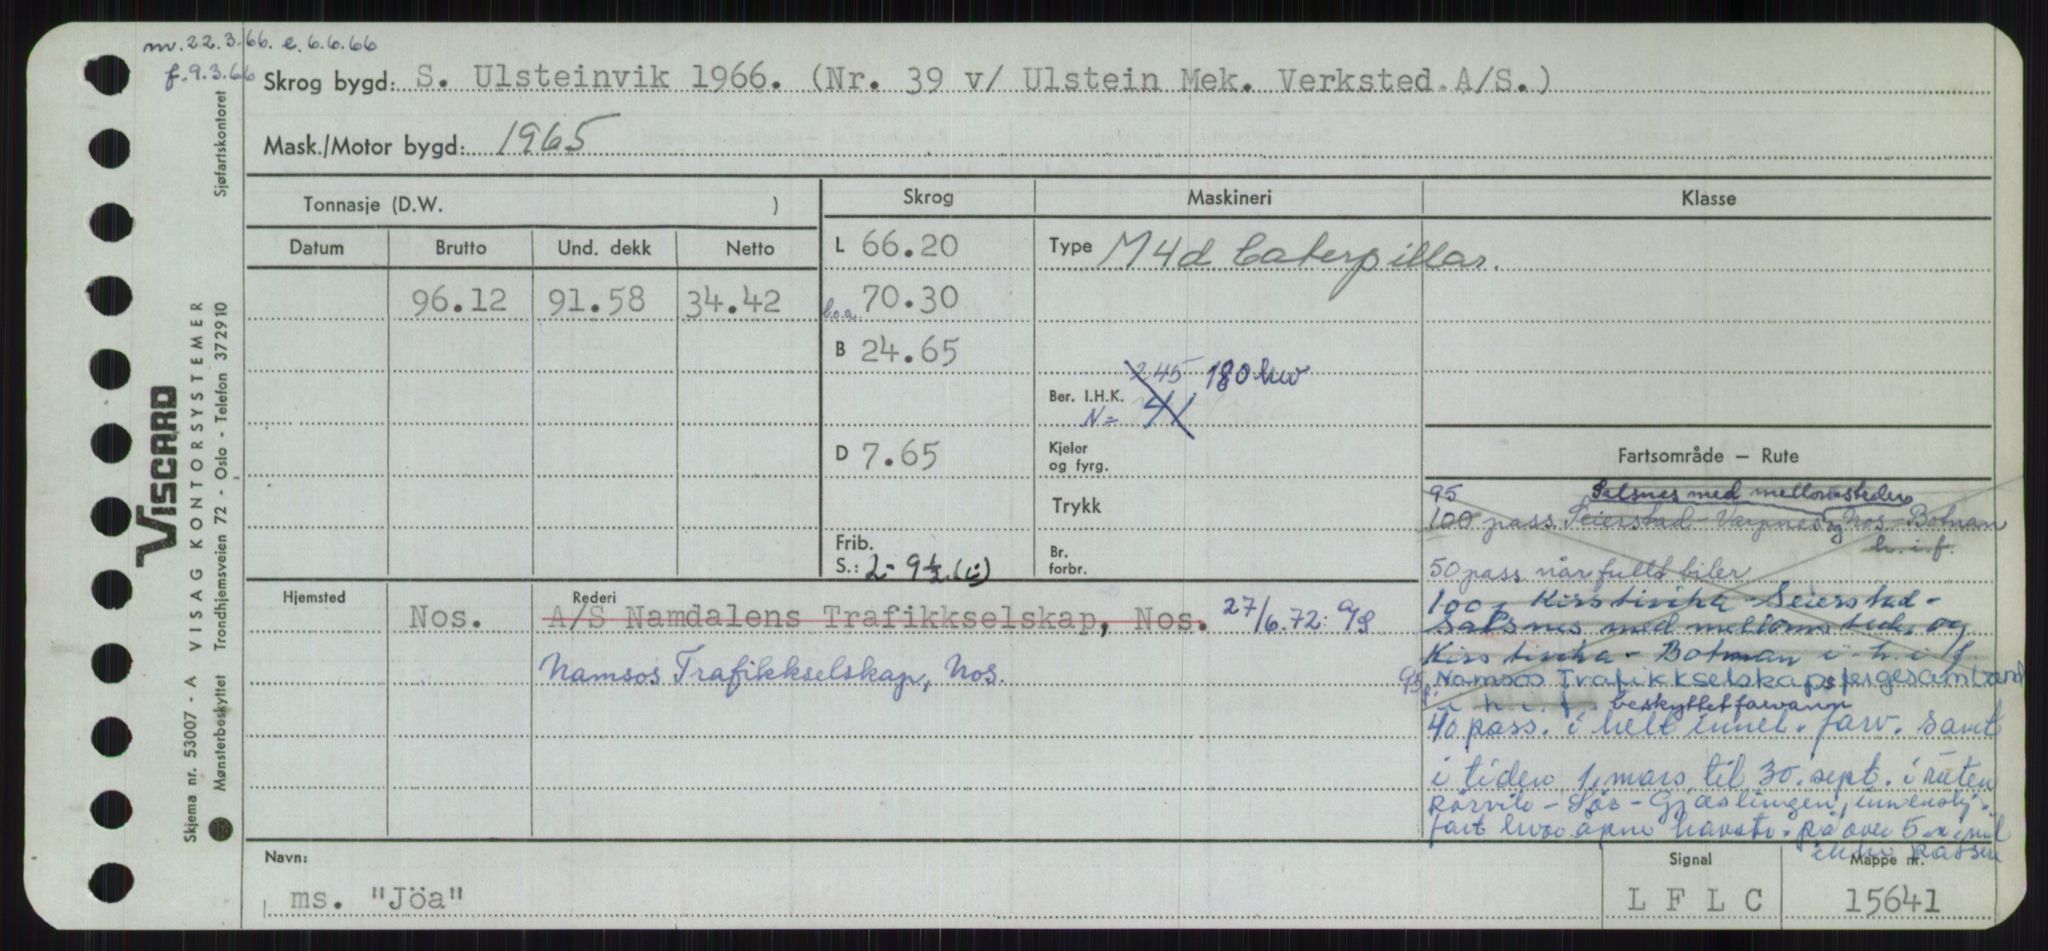 nv. 22.3.66. e. 6.6.66
f. 9.3.66
Skrog bygd: S. Ulsteinvik 1966. (Nr. 39 v/ Ulstein Mek. Verksted A/S.)
Mask./Motor bygd: 1965
Tonnasje (D.W. )
Skrog
Maskineri
Klasse
Datum Brutto Und. dekk Netto
L 66.20
Type M4d Caterpillar.
96.12 91.58 34.42
l.o.a. 70.30
B 24.65
Ber. I.H.K. 245 180 kw
N= 41
D 7.65
Kjeler og fyrg.
Trykk
Frib.
S.: 2 - 9 1/2 (i)
Br. forbr.
Fartsområde — Rute
95 Salsnes med mellomsteder
100 pass. Seierstad - Varpnes og Nos - Botnan
h. i. f.
50 pass når fullt biler
100 Kirstivika - Seierstad -
Salsnes med mellomsted. og
Kirstivika - Botnan i h. i f.
95 Namsos Trafikkselskaps fergesamband
i h. i. f. beskyttet farvann
40 pass. i helt innel. farv. samt
i tiden 1. mars til 30. sept. i ruten
Rørvik - Sør-Gjæslingen, innenskj.
fart hvor åpne havstr. på over 5 n. mil
Hjemsted Rederi
Nos. A/S Namdalens Trafikkselskap, Nos. 27/6.72: A/S
Namsos Trafikkselskap, Nos.
Navn:
ms. "Jöa"
Signal
L F L C
Mappe nr.
15641
VISCARD
Skjema nr. 53007 - A VISAG KONTORSYSTEMER
Mønsterbeskyttet Trondhjemsveien 72 - Oslo - Telefon 372910
Sjøfartskontoret